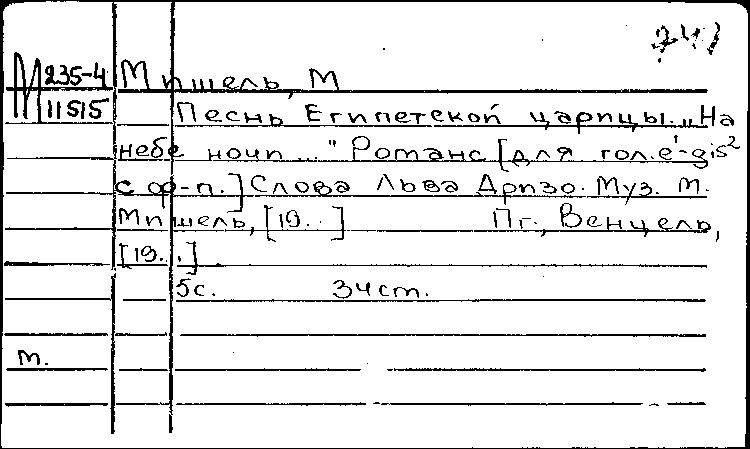 741
М 235-4 Мишель, М
11515 Песнь Египетской царицы. „На
небе ночи ..." Романс [для гол. e¹-gis²
с ф-п.] Слова Льва Дризо. Муз. М.
Мишель, [19..] Пг., Венцель,
[19..]
5с. 3чст.
т.